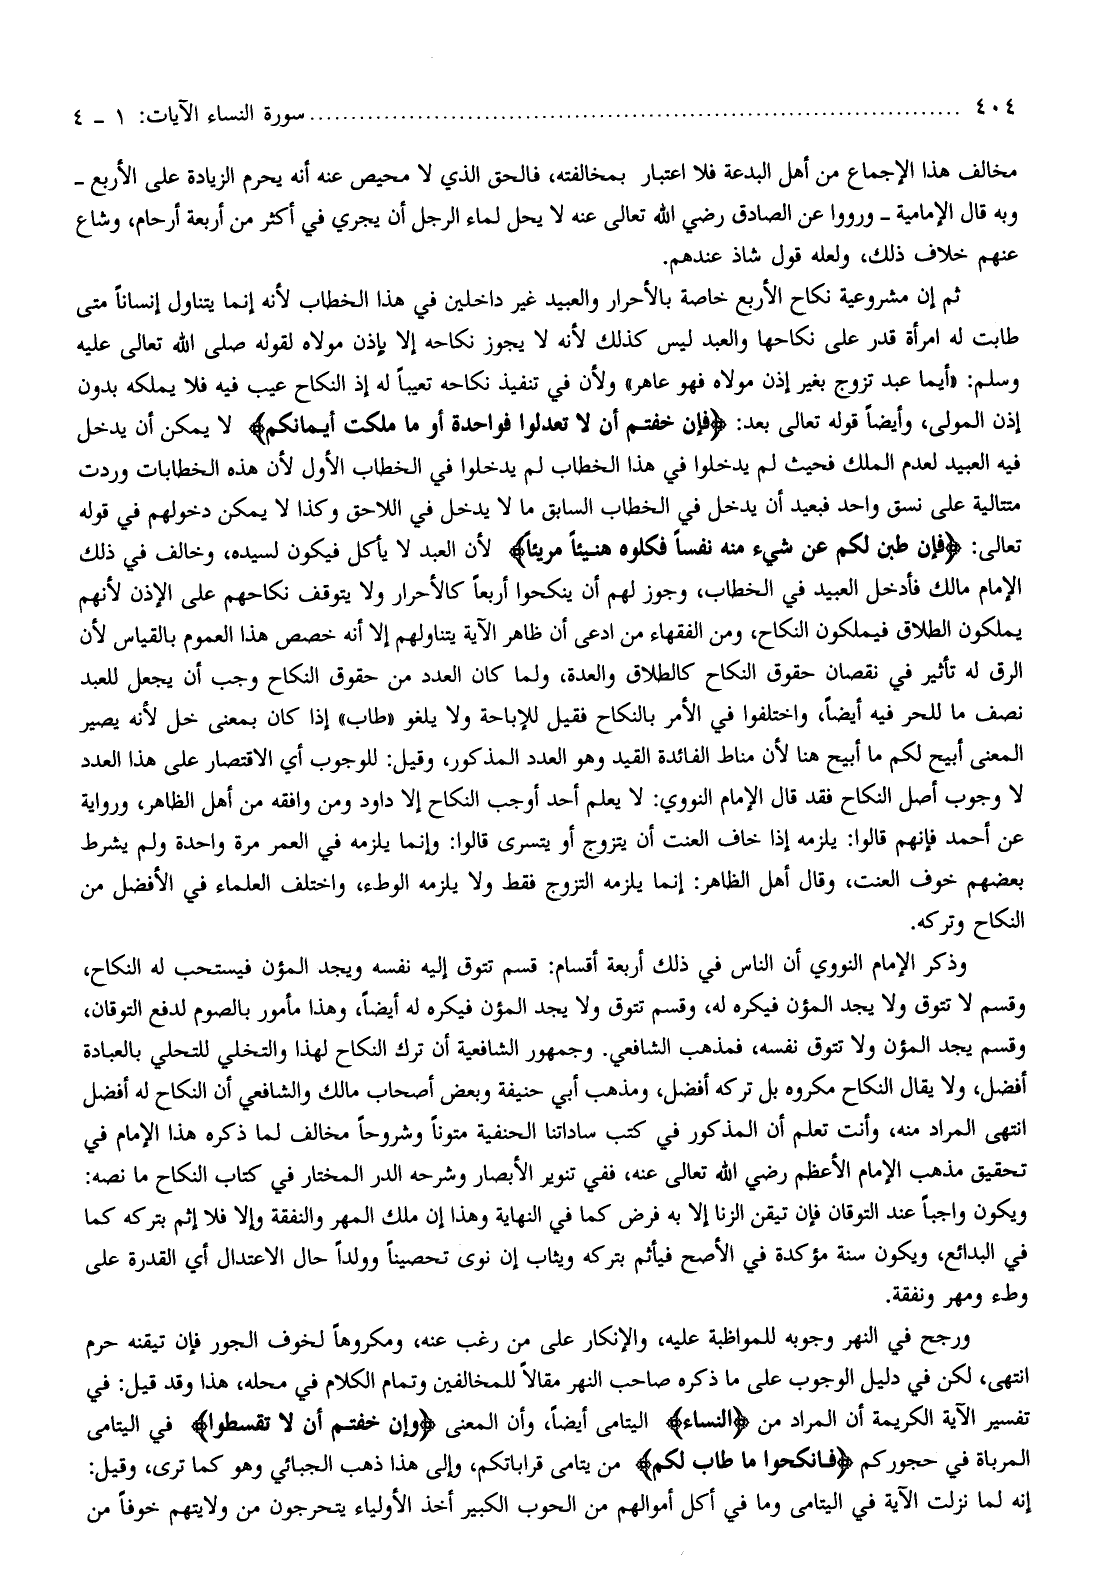 ٤٠٤ ........................................ سورة النساء الآيات: ١ - ٤
مخالف هذا الإجماع من أهل البدعة فلا اعتبار بمخالفته، فالحق الذي لا محيص عنه أنه يحرم الزيادة على الأربع -
وبه قال الإمامية - ورووا عن الصادق رضي الله تعالى عنه لا يحل لماء الرجل أن يجري في أكثر من أربعة أرحام، وشاع
عنهم خلاف ذلك، ولعله قول شاذ عندهم.
ثم إن مشروعية نكاح الأربع خاصة بالأحرار والعبيد غير داخلين في هذا الخطاب لأنه إنما يتناول إنساناً متى
طابت له امرأة قدر على نكاحها والعبد ليس كذلك لأنه لا يجوز نكاحه إلا بإذن مولاه لقوله صلى الله تعالى عليه
وسلم: «أيما عبد تزوج بغير إذن مولاه فهو عاهر» ولأن في تنفيذ نكاحه تعيباً له إذ النكاح عيب فيه فلا يملكه بدون
إذن المولى، وأيضاً قوله تعالى بعد: ﴿فإن خفتم أن لا تعدلوا فواحدة أو ما ملكت أيمانكم﴾ لا يمكن أن يدخل
فيه العبيد لعدم الملك فحيث لم يدخلوا في هذا الخطاب لم يدخلوا في الخطاب الأول لأن هذه الخطابات وردت
متتالية على نسق واحد فبعيد أن يدخل في الخطاب السابق ما لا يدخل في اللاحق وكذا لا يمكن دخولهم في قوله
تعالى: ﴿فإن طبن لكم عن شيء منه نفساً فكلوه هنيئاً مريئاً﴾ لأن العبد لا يأكل فيكون لسيده، وخالف في ذلك
الإمام مالك فأدخل العبيد في الخطاب، وجوز لهم أن ينكحوا أربعاً كالأحرار ولا يتوقف نكاحهم على الإذن لأنهم
يملكون الطلاق فيملكون النكاح، ومن الفقهاء من ادعى أن ظاهر الآية يتناولهم إلا أنه خصص هذا العموم بالقياس لأن
الرق له تأثير في نقصان حقوق النكاح كالطلاق والعدة، ولما كان العدد من حقوق النكاح وجب أن يجعل للعبد
نصف ما للحر فيه أيضاً، واختلفوا في الأمر بالنكاح فقيل للإباحة ولا يلغو «طاب» إذا كان بمعنى خل لأنه يصير
المعنى أبيح لكم ما أبيح هنا لأن مناط الفائدة القيد وهو العدد المذكور، وقيل: للوجوب أي الاقتصار على هذا العدد
لا وجوب أصل النكاح فقد قال الإمام النووي: لا يعلم أحد أوجب النكاح إلا داود ومن وافقه من أهل الظاهر، ورواية
عن أحمد فإنهم قالوا: يلزمه إذا خاف العنت أن يتزوج أو يتسرى قالوا: وإنما يلزمه في العمر مرة واحدة ولم يشرط
بعضهم خوف العنت، وقال أهل الظاهر: إنما يلزمه التزوج فقط ولا يلزمه الوطء، واختلف العلماء في الأفضل من
النكاح وتركه.
وذكر الإمام النووي أن الناس في ذلك أربعة أقسام: قسم تتوق إليه نفسه ويجد المؤن فيستحب له النكاح،
وقسم لا تتوق ولا يجد المؤن فيكره له، وقسم تتوق ولا يجد المؤن فيكره له أيضاً، وهذا مأمور بالصوم لدفع التوقان،
وقسم يجد المؤن ولا تتوق نفسه، فمذهب الشافعي. وجمهور الشافعية أن ترك النكاح لهذا والتخلي للتحلي بالعبادة
أفضل، ولا يقال النكاح مكروه بل تركه أفضل، ومذهب أبي حنيفة وبعض أصحاب مالك والشافعي أن النكاح له أفضل
انتهى المراد منه، وأنت تعلم أن المذكور في كتب ساداتنا الحنفية متوناً وشروحاً مخالف لما ذكره هذا الإمام في
تحقيق مذهب الإمام الأعظم رضي الله تعالى عنه، ففي تنوير الأبصار وشرحه الدر المختار في كتاب النكاح ما نصه:
ويكون واجباً عند التوقان فإن تيقن الزنا إلا به فرض كما في النهاية وهذا إن ملك المهر والنفقة وإلا فلا إثم بتركه كما
في البدائع، ويكون سنة مؤكدة في الأصح فيأثم بتركه ويثاب إن نوى تحصيناً وولداً حال الاعتدال أي القدرة على
وطء ومهر ونفقة.
ورجح في النهر وجوبه للمواظبة عليه، والإنكار على من رغب عنه، ومكروهاً لخوف الجور فإن تيقنه حرم
انتهى، لكن في دليل الوجوب على ما ذكره صاحب النهر مقالاً للمخالفين وتمام الكلام في محله، هذا وقد قيل: في
تفسير الآية الكريمة أن المراد من ﴿النساء﴾ اليتامى أيضاً، وأن المعنى ﴿وإن خفتم أن لا تقسطوا﴾ في اليتامى
المرباة في حجوركم ﴿فانكحوا ما طاب لكم﴾ من يتامى قراباتكم، وإلى هذا ذهب الجبائي وهو كما ترى، وقيل:
إنه لما نزلت الآية في اليتامى وما في أكل أموالهم من الحوب الكبير أخذ الأولياء يتحرجون من ولايتهم خوفاً من